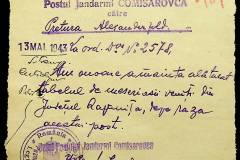 Postul Jandarmi COMISAROVCA
către
Pretura Alexanderfeld
13 MAI 1943 La ord. Dvs. N° 2578,
Am onoare a înainta alăturat
tabloul de meseriași veniți din
Județul Râbnița, depe raza
acestui post.
Șeful Postului Jandarmi COMISAROVCA